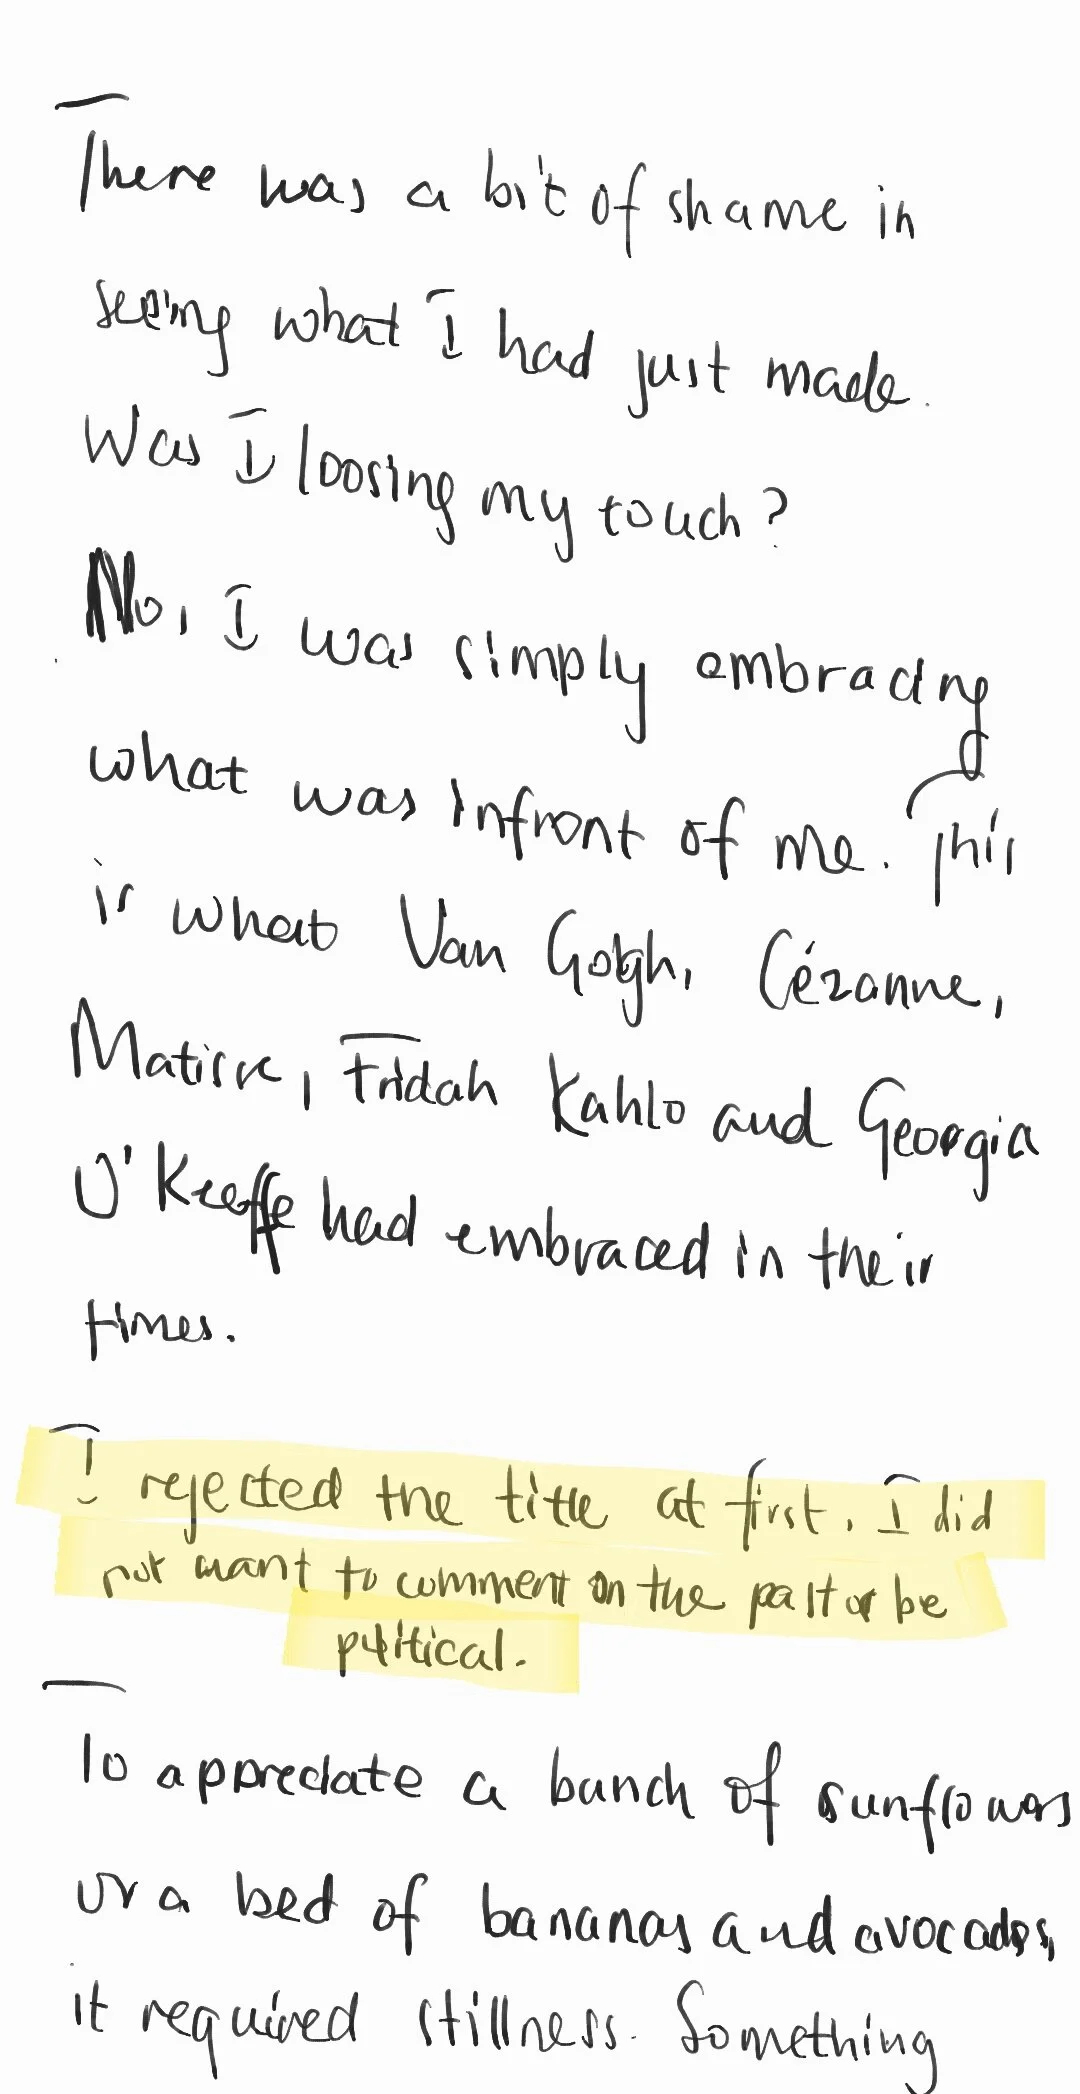 There was a bit of shame in
seeing what I had just made.
Was I loosing my touch?
No, I was simply embracing
what was infront of me. This
is what Van Gogh, Cézanne,
Matisse, Fridah Kahlo and Georgia
O'Keeffe had embraced in their
times.
I rejected the title at first. I did
not want to comment on the past or be
political.
To appreciate a bunch of sunflowers
or a bed of bananas and avocados,
it required stillness. Something